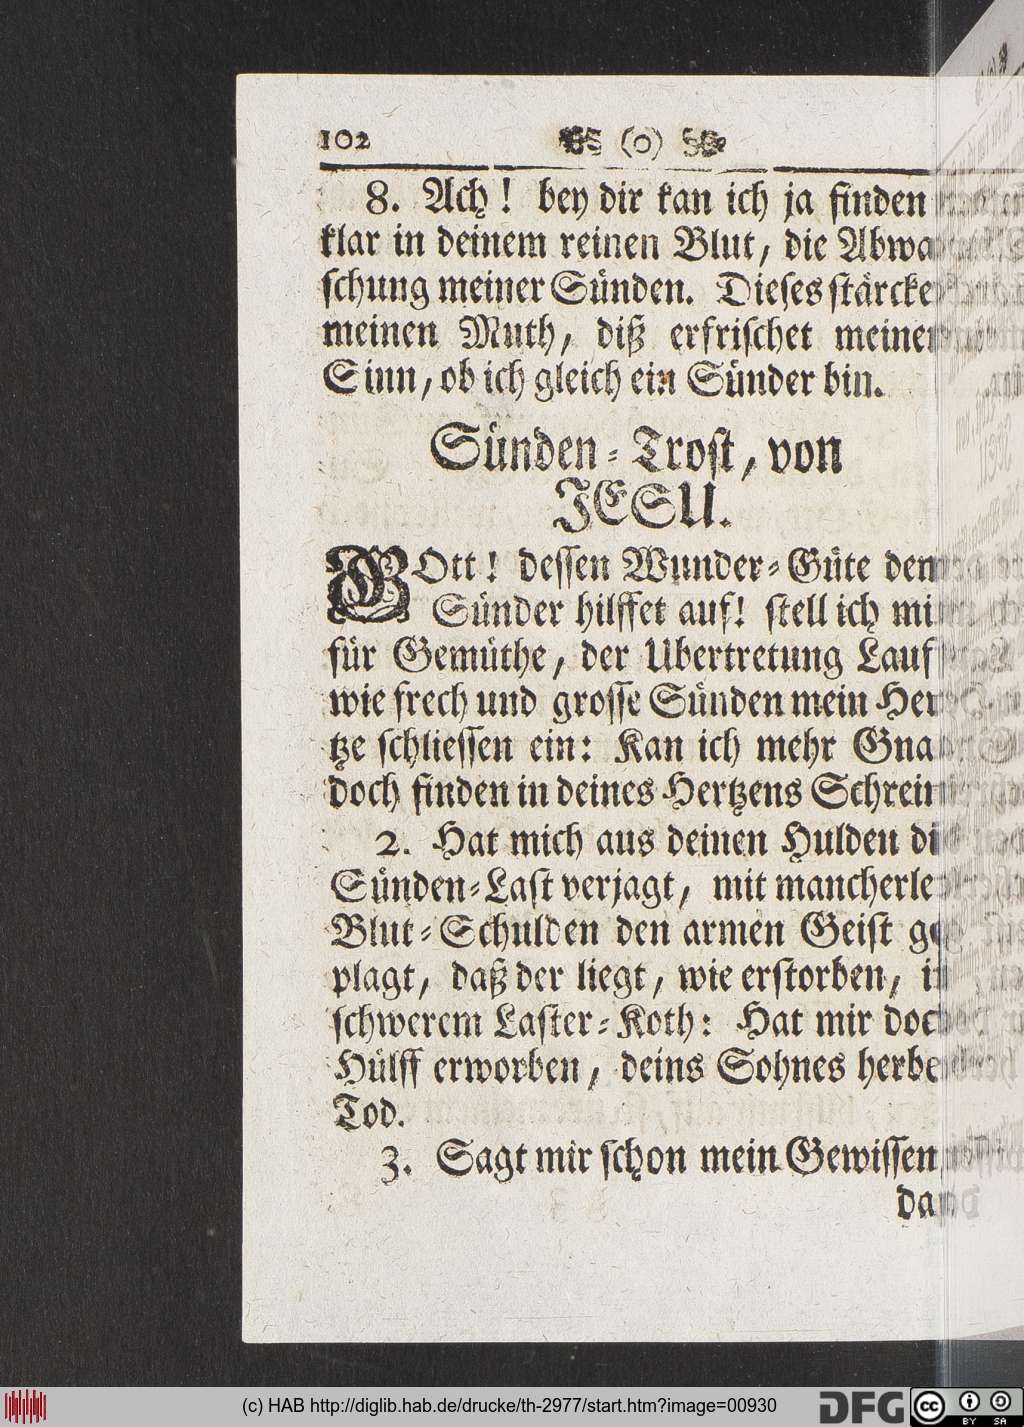 102 (o)
8. Ach! bey dir kan ich ja finden
klar in deinem reinen Blut, die Abwa-
schung meiner Sünden. Dieses stärcke
meinen Muth, diß erfrischet meinen
Sinn, ob ich gleich ein Sünder bin.
Sünden-Trost, von
JESU.
GOtt! dessen Wunder-Güte dem
Sünder hilffet auf! stell ich mir
für Gemüthe, der Ubertretung Lauf
wie frech und grosse Sünden mein Her-
tze schliessen ein: Kan ich mehr Gnad
doch finden in deines Hertzens Schrein
2. Hat mich aus deinen Hulden die
Sünden-Last verjagt, mit mancherley
Blut-Schulden den armen Geist ge-
plagt, daß der liegt, wie erstorben, in
schwerem Laster-Koth: Hat mir doch
Hülff erworben, deins Sohnes herber
Tod.
3. Sagt mir schon mein Gewissen
(c) HAB http://diglib.hab.de/drucke/th-2977/start.htm?image=00930
DFG cc BY SA